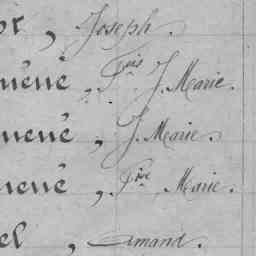 or, Joseph.
mené, Fçois J. Marie.
mené, J. Marie.
mené, Fçoise Marie.
el, Amand.